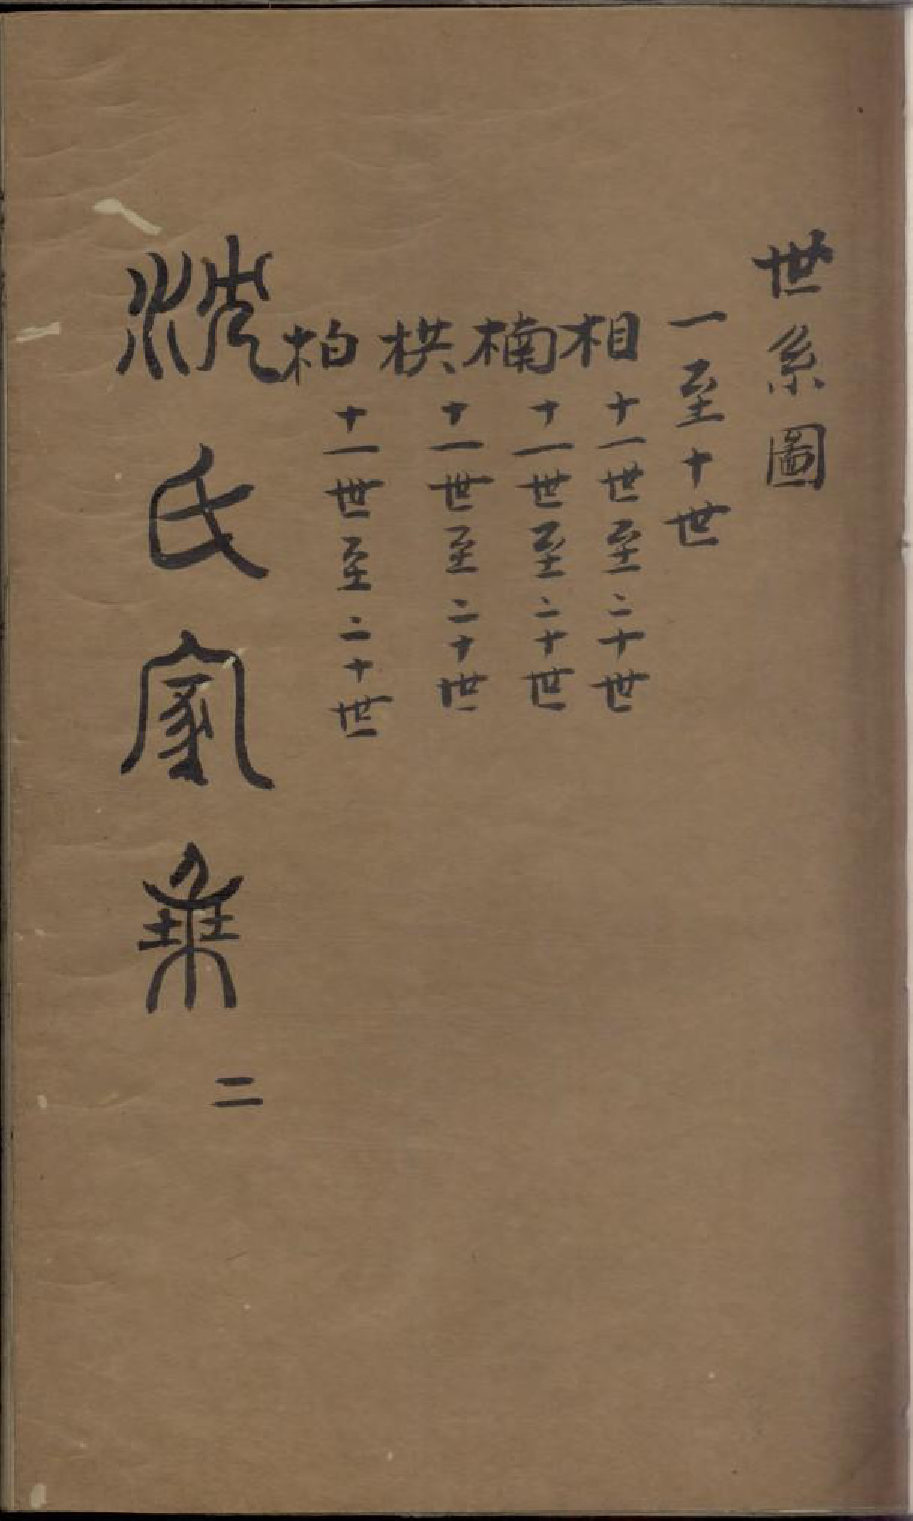 世系圖
一至十世
相 十一世至二十世
楠 十一世至二十世
栱 十一世至二十世
柏 十一世至二十世
沈氏家乘 二